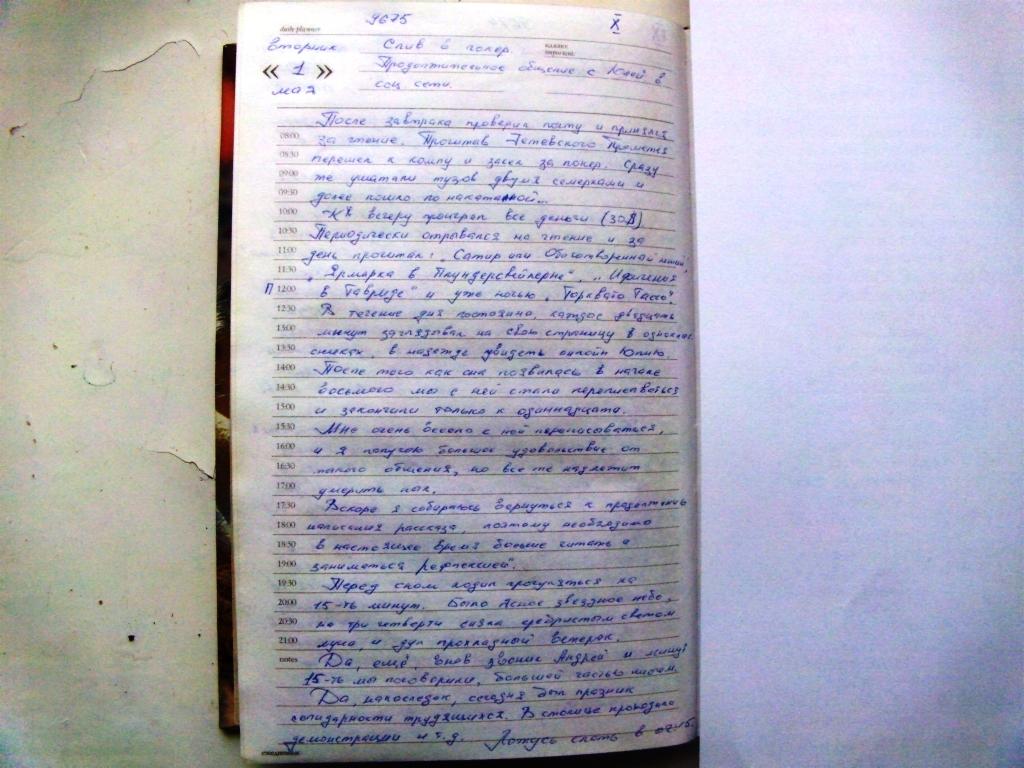 9675
X
daily planner
вторник
Слив в покер.
важнее
« 1 »
Продолжительное общение с Юлей в
мая
соц сети.
После завтрака проверил почту и принялся
08:00
за чтение. Прочитав Гетевского Прометея
08:30
перешел к компу и засел за покер. Сразу
09:00
же ушатали тузов двумя семерками и
09:30
далее пошло по накатанной...
10:00
К вечеру проиграл все деньги (30$)
10:30
Периодически отрывался на чтение и за
11:00
день прочитал: „Сатир или Обоготворенный леший",
11:30
„Ярмарка в Плундерсвейлерне", „Ифигения
П 12:00
в Тавриде" и уже ночью „Торквато Тассо".
12:30
В течение дня постоянно, каждые двадцать
13:00
минут заглядывал на свою страницу в однокла
13:30
сниках, в надежде увидеть онлайн Юлию.
14:00
После того как она появилась в начале
14:30
восьмого мы с ней стали переписываться
15:00
и закончили только к одиннадцати.
15:30
Мне очень весело с ней переписываться,
16:00
и я получаю большое удовольствие от
16:30
такого общения, но все же надлежит
17:00
умерить пыл.
17:30
Вскоре я собираюсь вернуться к продолжению
18:00
написания рассказа, поэтому необходимо
18:30
в настоящее время больше читать и
19:00
заниматься рефлексией.
19:30
Перед сном ходил прогуляться на
20:00
15-ть минут. Было ясное звездное небо,
20:30
на три четверти сияла серебристым светом
21:00
луна, и дул прохладный ветерок.
notes
Да, ещё, днём звонил Андрей и минут
15-ть мы поговорили, большей частью ни о чем.
Да, напоследок, сегодня был празник
солидарности трудящихся. В столице проходили
демонстрации и т.д. Ложусь спать в 02:15.